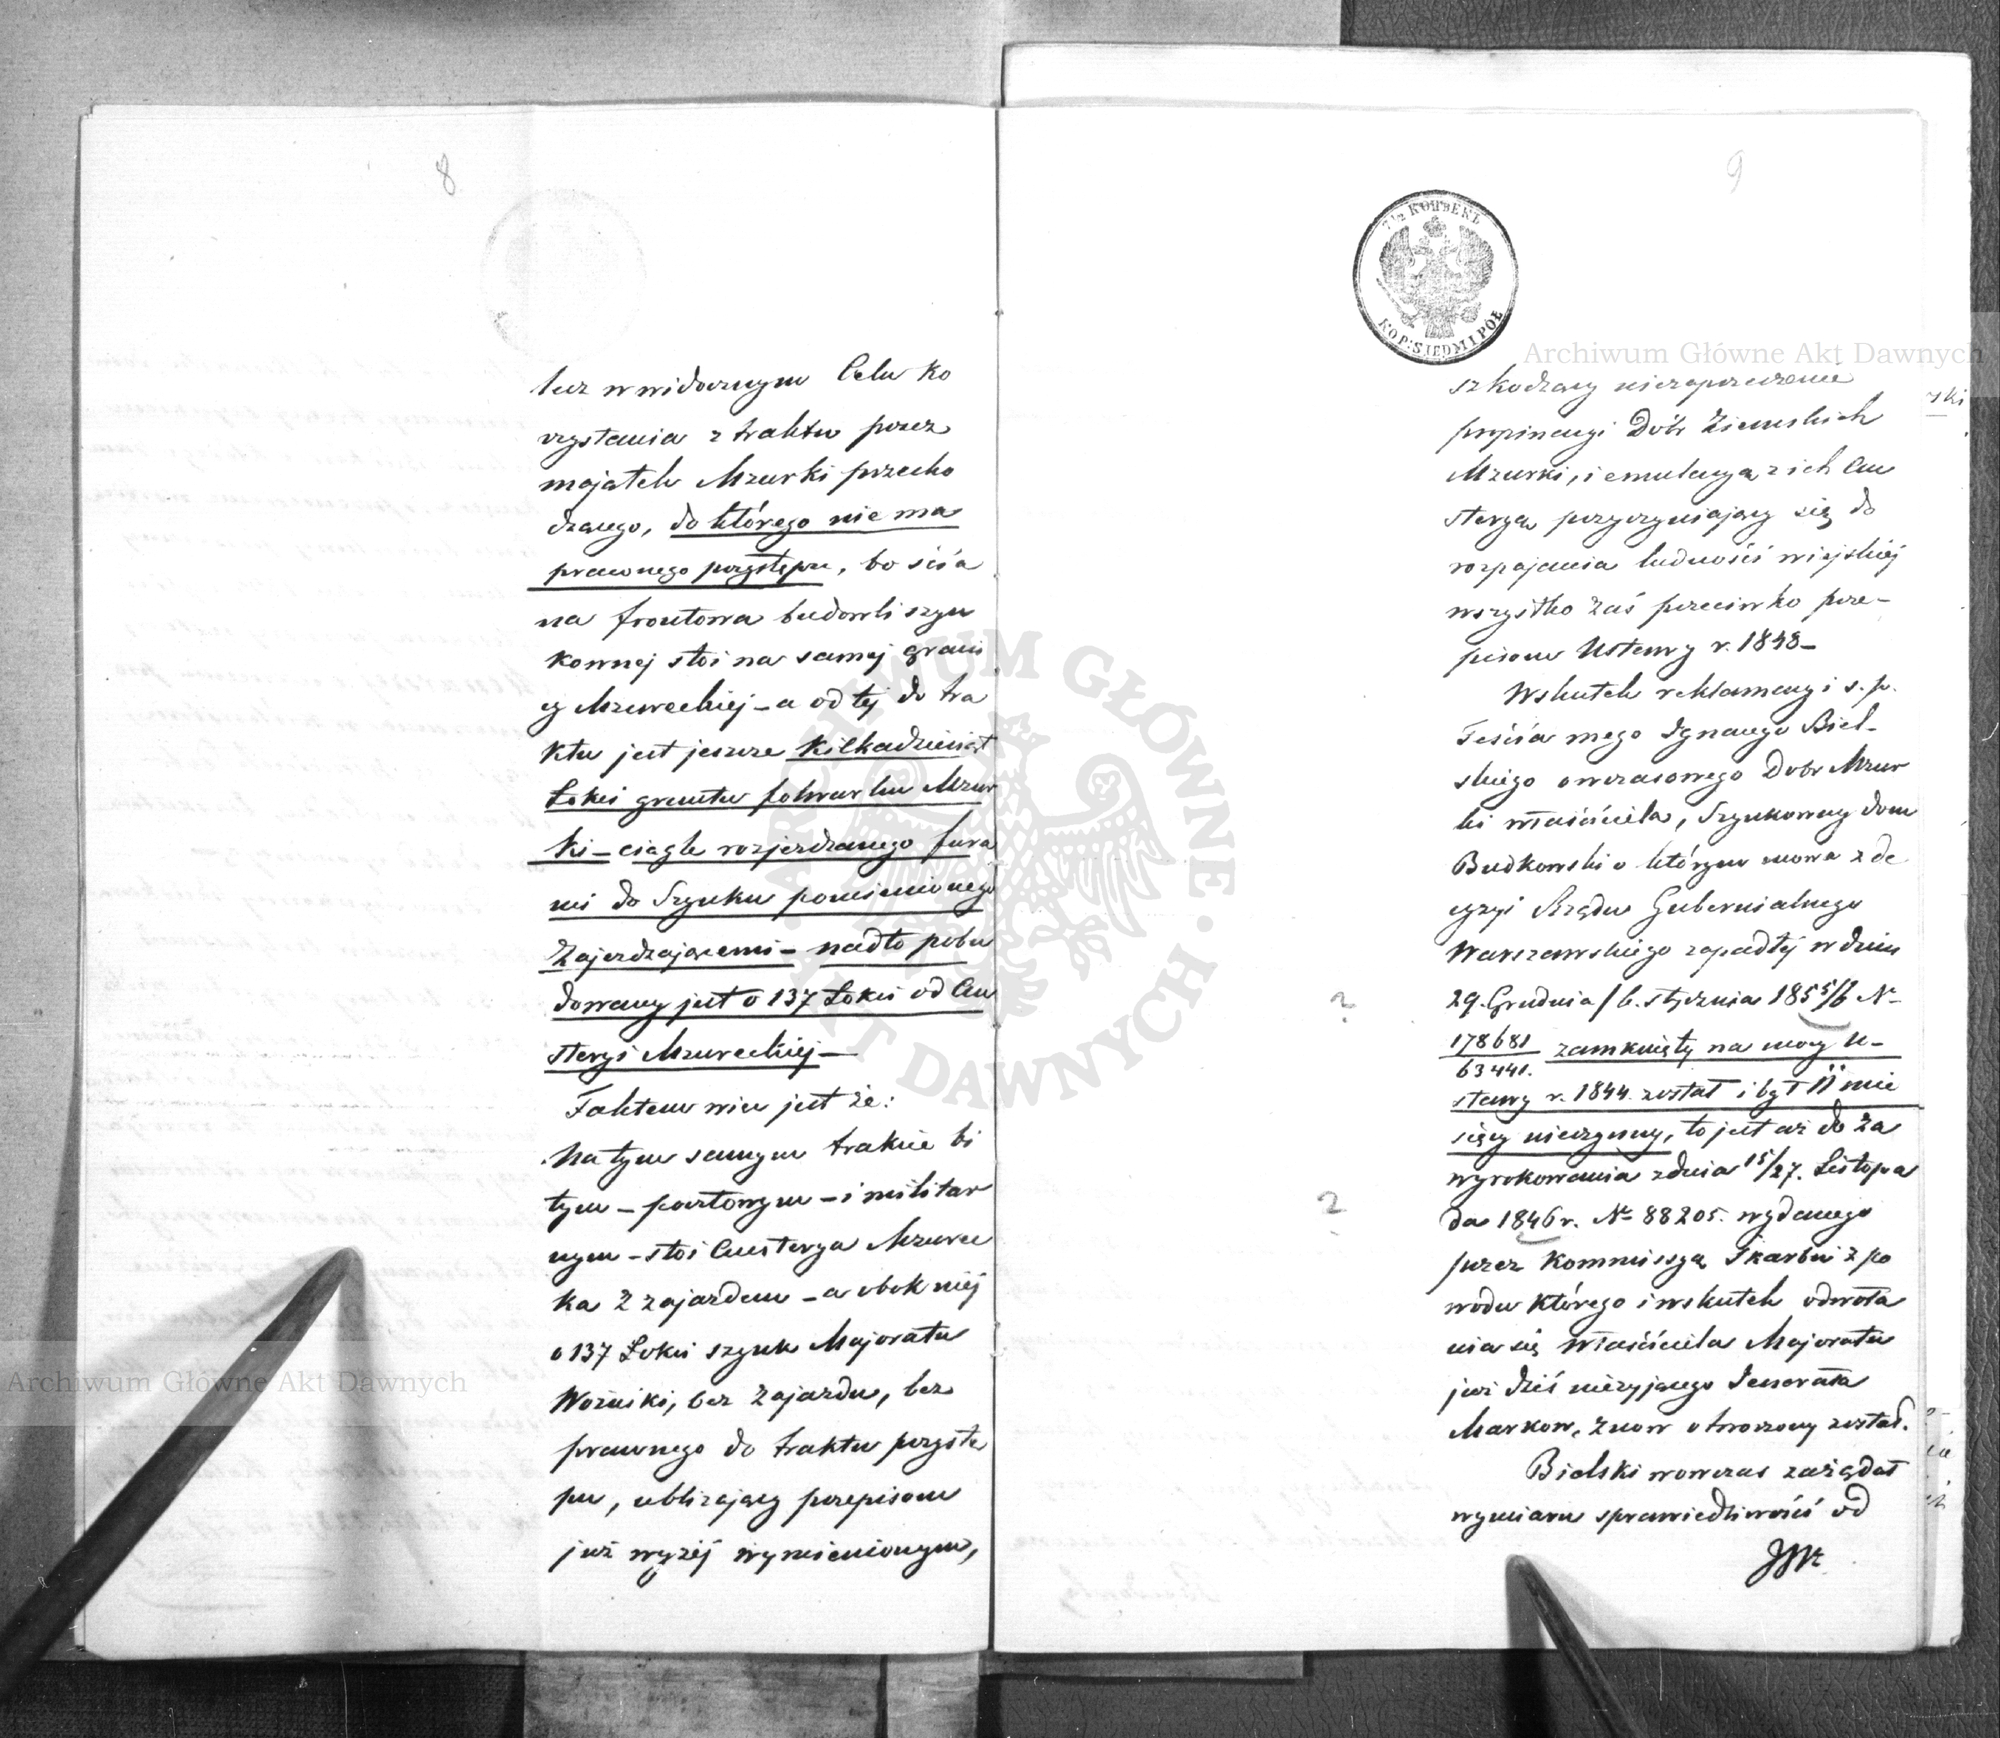 8
lecz w widocznym Celu ko
rzystania z traktu przez
majątek Mzurki przecho
dzącego, do którego nie ma
prawnego przystępu, bo ścia
na frontowa budowli szyn
kownej stoi na samej grani
cy Mzureckiej – a od tej do tra
ktu jest jeszcze kilkadziesiąt
Łokci gruntu folwarku Mzur
ki – ciągle rozjeżdżanego fura
mi do Szynku pomienionego
Zajeżdżającemi – nadto pobu
dowany jest o 137 Łokci od Au
steryi Mzureckiej –
Faktem więc jest że:
Na tym samym trakcie bi
tym – pocztowym – i militar
nym – stoi Austerya Mzurec
ka z zajazdem – a obok niej
o 137 Łokci szynk Majoratu
Woźniki, bez Zajazdu, bez
prawnego do traktu przystę
pu, ubliżający przepisom
już wyżej wymienionym,
9
7½ КОПѢЕКЪ
KOP: SIEDM I PÓŁ
szkodzący niezaprzeczenie
propinacyi Dóbr Ziemskich
Mzurki, i emulacyą z ich Au
steryą przyczyniający się do
rozpajania ludności wiejskiej
wszystko zaś przeciwko prze-
pisom Ustawy r. 1848 –
Wskutek reklamacyi s. p.
Teścia mego Ignacego Biel-
skiego owczasowego Dóbr Mzur
ki właściciela, Szynkowny dom
Budkowski o którym mowa z de
cyzyi Rządu Gubernialnego
Warszawskiego zapadłej w dniu
29. Grudnia / 6. stycznia 1855/6 N–
178681
63441. zamknięty na mocy U-
stawy r. 1844. został i był 11 mie
sięcy nieczynny, to jest aż do Za
wyrokowania z dnia 15/27. Listopa
da 1846 r. N– 88205. wydanego
przez Kommissyą Skarbu z po
wodu którego i wskutek odwoła
nia się Właściciela Majoratu
już dziś nieżyjącego Jenerała
Markow, znow otworzony został.
Bielski wowczas zażądał
wymiaru sprawiedliwości od
?
?
ski
Archiwum Główne Akt Dawnych
Archiwum Główne Akt Dawnych
ARCHIWUM GŁÓWNE · AKT DAWNYCH ·